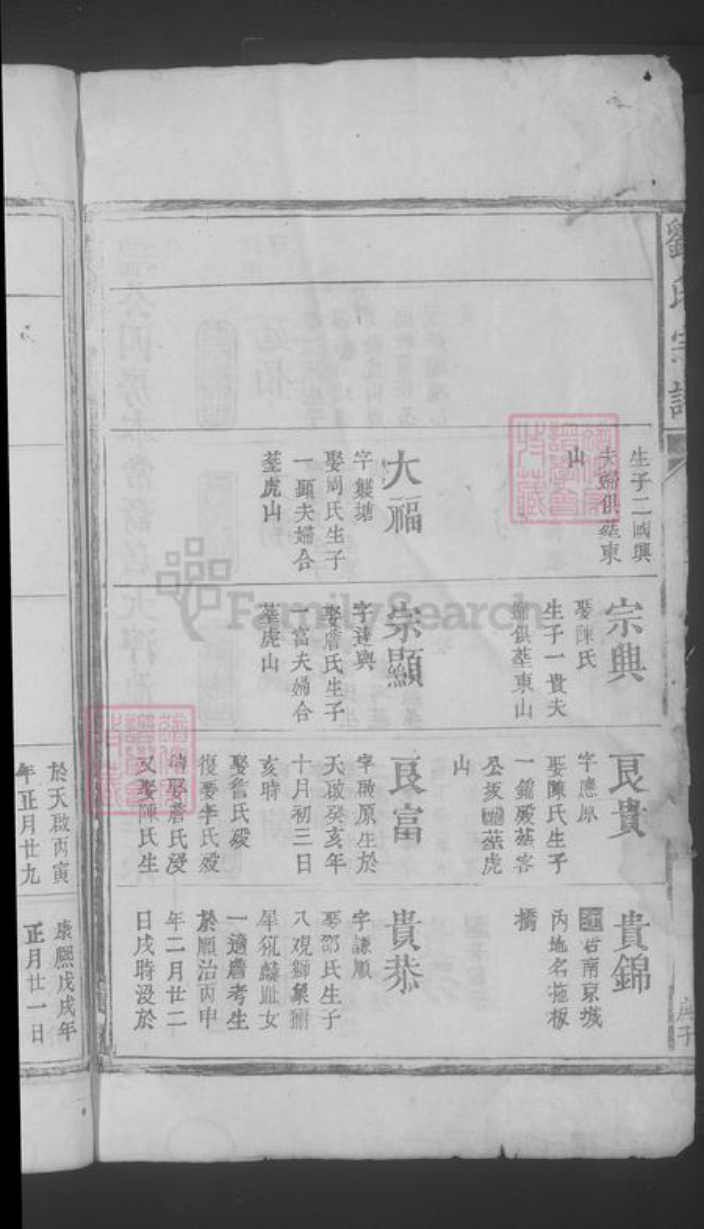 劉氏宗譜
生子二國興
夫婦俱塟東
山
大福
娶周氏生子
一顯夫婦合
塟虎山
宗興
娶陳氏
生子一貴夫
婦俱塟東山
宗顯
字達興
娶詹氏生子
一富夫婦合
塟虎山
艮貴
字應原
娶陳氏生子
一錦殁塟客
塟虎
山
艮富
字啟原生於
天啟癸亥年
十月初三日
亥時
娶詹氏殁
復娶李氏殁
娶詹氏殁
又娶陳氏生
貴錦
居南京城
內地名拖板
橋
貴恭
字謙順
娶鄧氏生子
八觀獅象
麟趾女
一適詹考生
於順治丙申
年二月廿二
日戌時沒於
於天啟丙寅
年正月廿九
康熙戊戌年
正月廿一日
FamilySearch